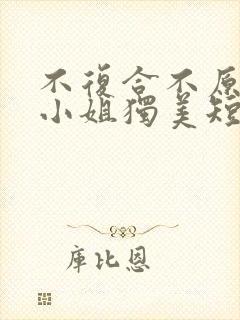 不復合不原
小姐獨美短
庫比恩